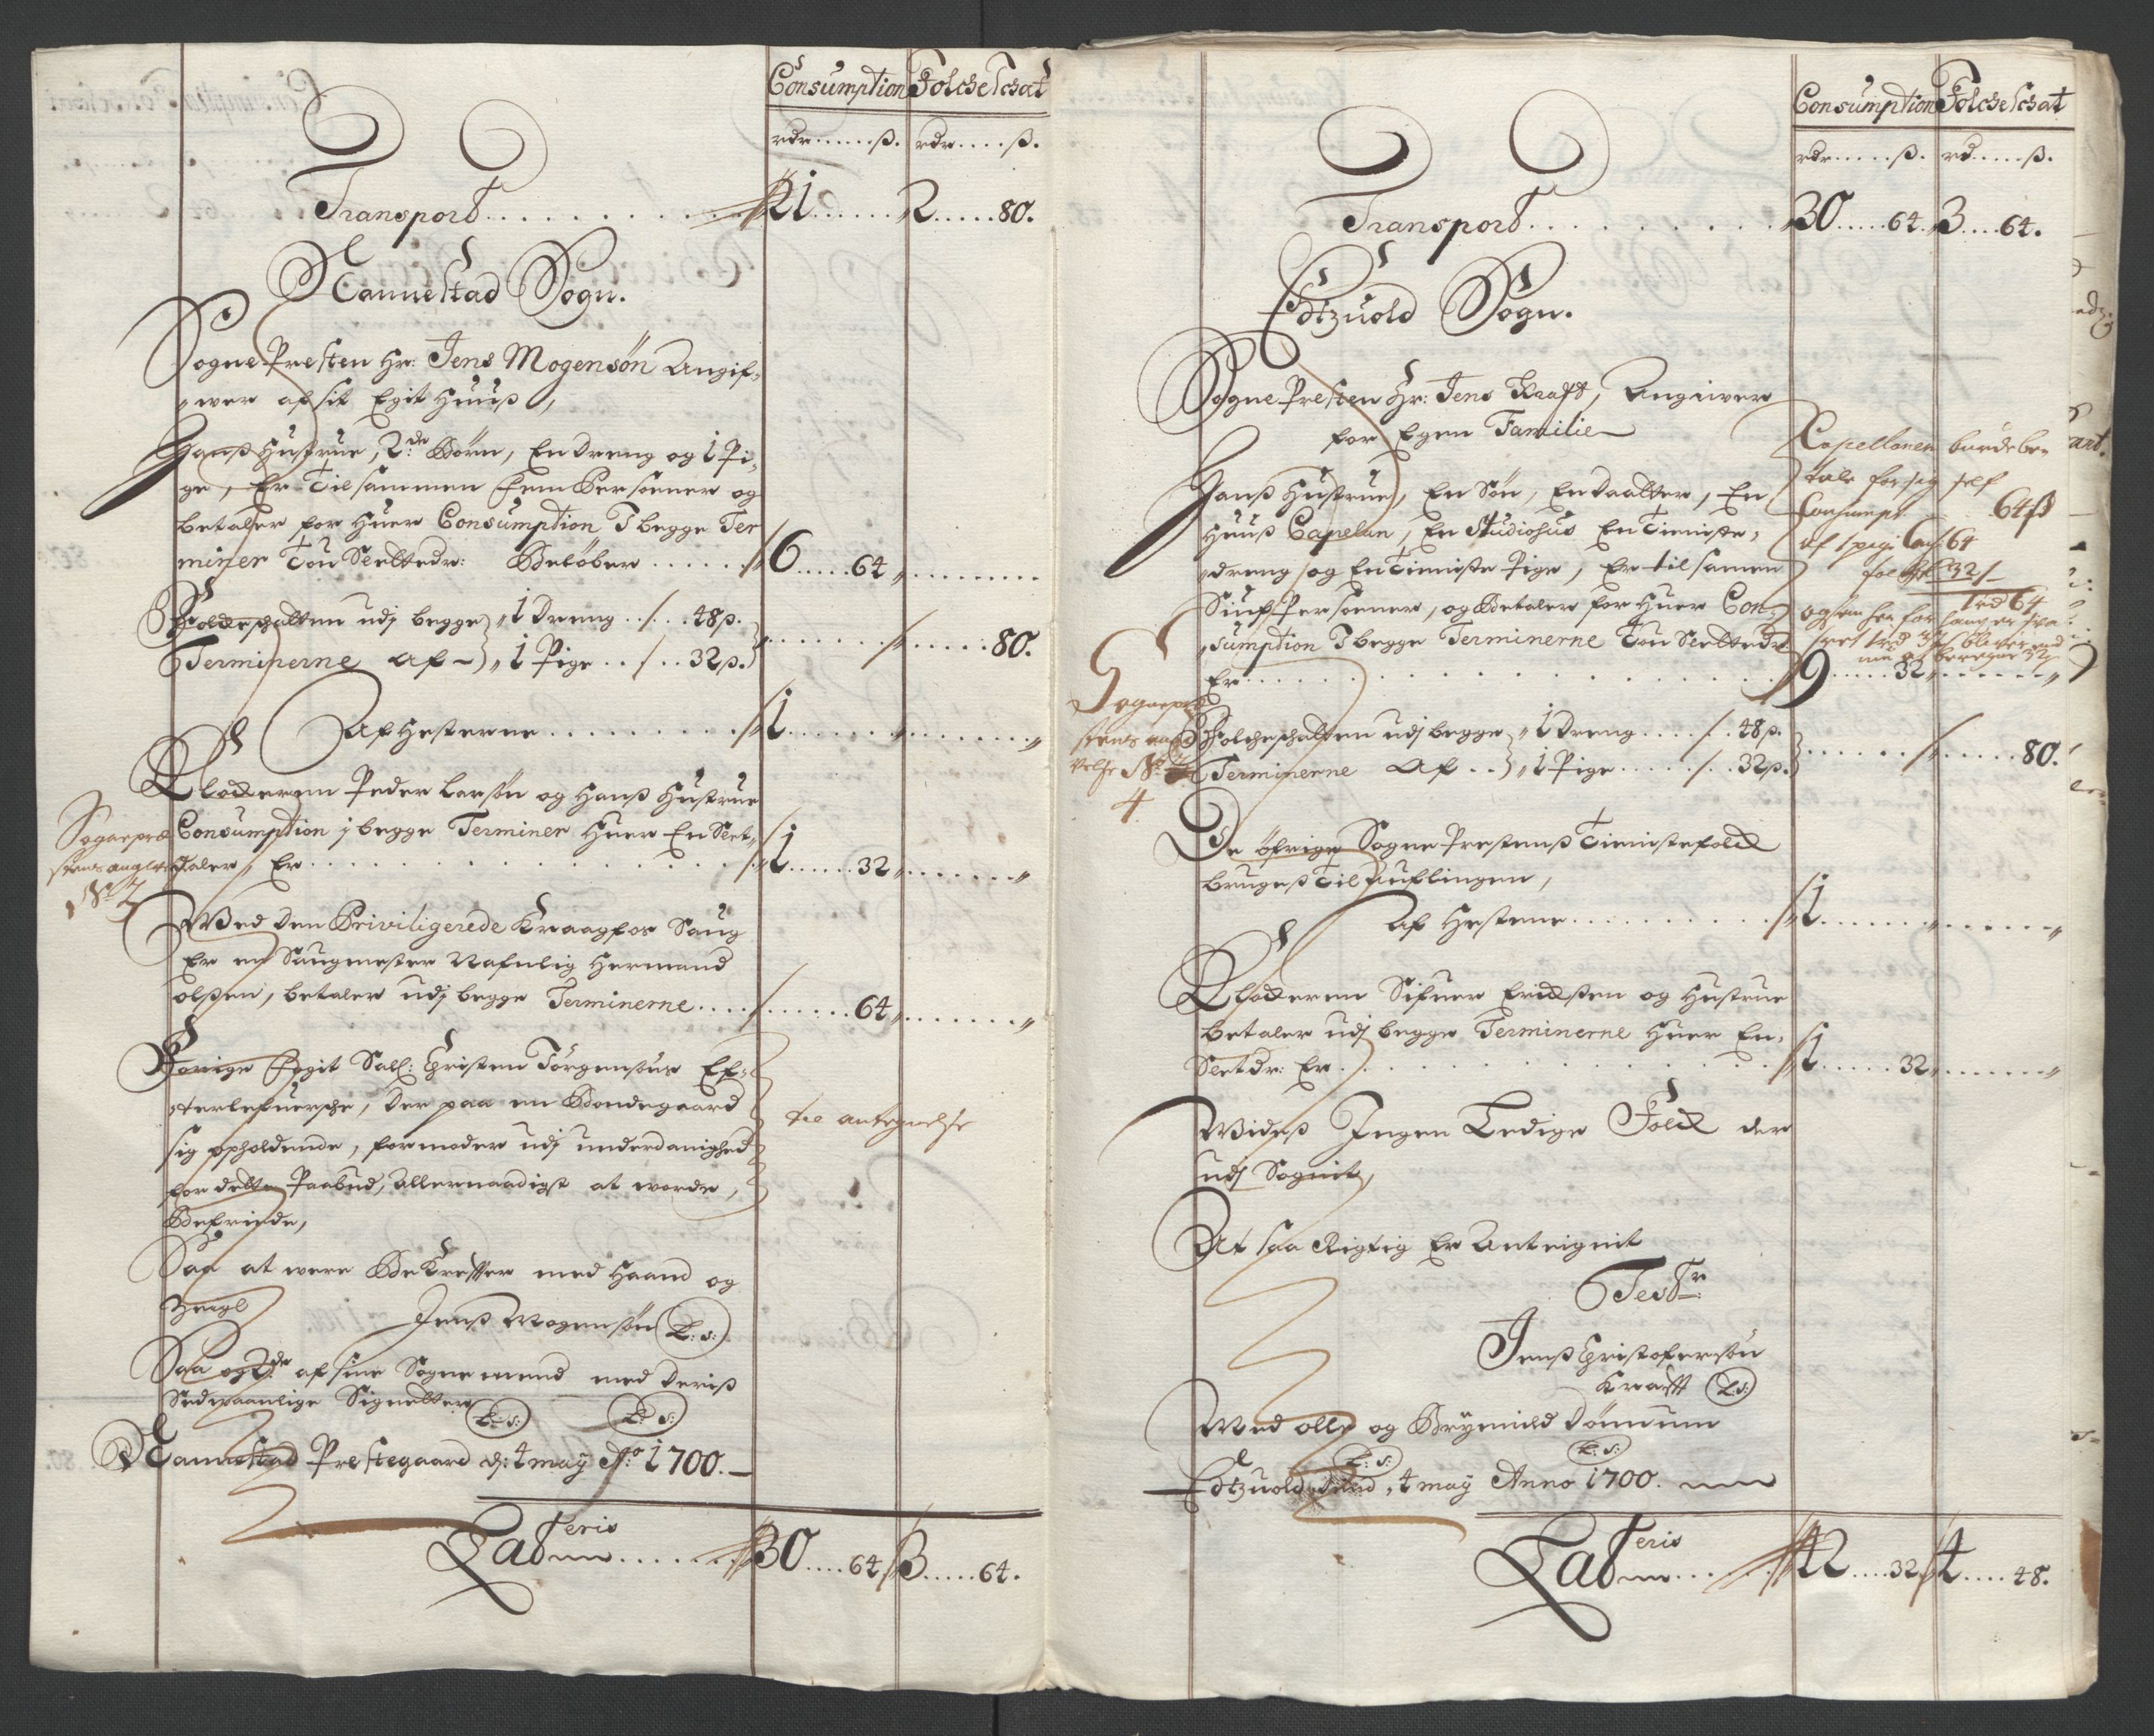 Consumption Folcheschat
rdr......ß. rdr.....ß.
Transport......... 21...... 2.....80.
Nannestad Sogn.
Sogne Presten Hr: Jens Mogensøn Angif-
wer af sit Egit Huuß,
Hanß Hustrue, 2de Børn, En dreng og 1 Pi-
ge, Er Tilsammen fem Persoener og
betaler for Huer Consumption I begge Ter
miner Tou Slettedr: Beløber...... 6.....64
Folcheschatten udj begge 1 Dreng..... 48ß.
Terminerne af - 1 Pige..... 32ß. ......80.
Af Hesterne.......... 1......
Klockeren Peder Larsøn og Hanß Hustrue
Consumption j begge Terminer Huer En Slet-
daler, Er......... 1......32
Sognepræ
stens angivelse
No 3
Wed den Priviligerede Kraagfos Saug
Er en Saugmester Nafnlig Hermand
olßen, betaler udj begge Terminerne.... ......64
Forige fogit Sall: Christen Jørgensøns Ef-
terlefuersche, der paa en Bondegaard
sig opholdende, formoder udj underdanighed
for dette Paabud, allernaadigst at worde,
Befriede,
til antegnelse
Saa at were BeKreffter med Haand og
Zeigl Jenß Mogensøn L: S:
Saa og 2de af sine Sogne mend med deriß
Sedwaanlige Signetter L: S: L: S:
Nannestad Prestegaard d: 4 may Ao 1700.
Lateris...... 30....64 3.....64.
Consumption Folcheschat
rdr.....ß. rd.....ß.
Transport......... 30.....64. 3....64.
Edtzuold Sogn.
Sogne Presten Hr: Jens Kraft, Angiwer
for Egen Familie
Hanß Hustrue, En Søn, En daatter, En
Huuß Capelan, En Studiosus En Tieniste-
dreng, og En Tieniste Pige, Er tilsamen
Siuf Persoener, og Betaler for Huer Con-
sumption I begge Terminerne Tou Slettedr
Er......... 9.....32
Capellanen burde be-
tale for sig self
Consumpt 64ß
af 1 pige Cons 64
folkesk 32
1rd 64
Sognepræ
stens angi
velse No
4
Folcheschatten udj begge 1 Dreng..... 48ß.
Terminerne Af.. 1 Pige..... 32ß. ......80.
De øfrige Sogne Prestenß Tienistefolck
brugeß Til Auflingen,
Af Hestene.......... 1......
Klockeren Sifuer Erickßen og Hustrue
betaler udj begge Terminerne Huer En-
Sletdr: Er......... 1......32
Wideß Ingen Ledige Folck der
udj Sognit,
At saa Rigtig Er Anteignit
Testr
Jenß Christofersøn
Krafft L: S:
Med olle og Brynnild Dønnum
L: S: L: S:
Edtzuold, 4 may Anno 1700.
Lateris.... 42....32 4....48.